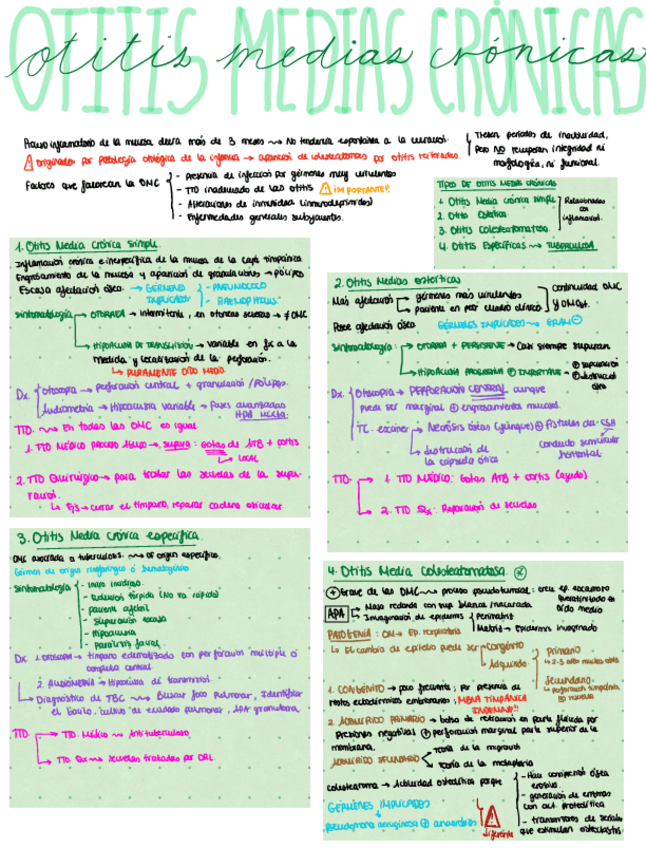 OTITIS MEDIAS CRÓNICAS
otitis medias crónicas
Proceso inflamatorio de la mucosa dura más de 3 meses → No tendencia espontánea a la curación.
Tienen periodos de inactividad,
pero NO recuperan integridad ni
morfológica, ni funcional.
originadas por patología otológica de la infancia → aparición de colesteatomas por otitis reiteradas.
Factores que favorecen la OMC
- Presencia de infección por gérmenes muy virulentos
- TTO inadecuado de las otitis ¡IMPORTANTE!!
- Alteraciones de inmunidad (inmunodeprimidos)
- Enfermedades generales subyacentes.
TIPOS DE OTITIS MEDIAS CRÓNICAS
1. Otitis Media crónica simple
2. Otitis Osteítica
3. Otitis Colesteatomatosa
Relacionadas
con
inflamación.
4. Otitis Específicas → TUBERCULOSA
1. Otitis Media Crónica Simple.
Inflamación crónica e inespecífica de la mucosa de la caja timpánica
Engrosamiento de la mucosa y aparición de granulaciones → pólipos
Escasa afectación ósea → GÉRMENES
IMPLICADOS
- PNEUMOCOCO
- HAEMOPHILUS
Sintomatología → OTORREA → intermitente, en otorreas secuelas → ≠ OMC
→ HIPOACUSIA DE TRANSMISIÓN → variable en fx a la
medida y localización de la perforación.
↳ PURAMENTE OÍDO MEDIO
Dx. Otoscopia → perforación central + granulación / Pólipos.
Audiometría → Hipoacusia variable → Fases avanzadas
HPA MIXTA.
TTO. → En todas las OMC es igual
1. TTO MÉDICO PROCESO AGUDO → supura: Gotas de ATB + cortis
↳ LOCAL
2. TTO Quirúrgico → para tratar las secuelas de la supu-
ración.
↳ Ejs → cerrar el tímpano, reparar cadena osicular.
2. Otitis Medias osteíticas
Más afectación
gérmenes más virulentos
paciente en peor cuadro clínico
continuidad OMC
y OMCst.
Posee afectación ósea
GÉRMENES IMPLICADOS → GRAM ⊖
Sintomatología: → OTORREA + PERSISTENTE → Casi siempre supuran
→ HIPOACUSIA PROGRESIVA ⊕ IMPORTANTE →
⊕ supuración
⊕ destrucción
ósea
Dx. Otoscopia → PERFORACIÓN CENTRAL aunque
puede ser marginal ⊕ engrosamiento mucosa.
TC. escáner → Necrosis óseas (yunque) ⊕ Fístulas del CSH
conducto semicircular
horizontal
↳ destrucción de
la cápsula ótica
TTO → 1. TTO MÉDICO: Gotas ATB + cortis (agudo)
→ 2. TTO Qx: Reparación de secuelas
3. Otitis Media Crónica específica.
OMC asociada a tuberculosis. → OF origen específico.
Germen de origen rinofaríngeo o hematógeno
Sintomatología
- Inicio insidioso.
- Evolución tórpida (No va rápido)
- paciente afebril
- Supuración escasa
- Hipoacusia
- Parálisis facial
Dx. 1. OTOSCOPIA → tímpano edematizado con perforación múltiple o
completa central
2. AUDIOMETRÍA → Hipoacusia de transmisión.
↳ Diagnóstico de TBC → Buscar foco pulmonar, Identificar
el bacilo, cultivo de exudado pulmonar, APA granuloma.
TTO → TTO. Médico → Antituberculoso
→ TTO Qx → secuelas tratadas por ORL
4. Otitis Media Colesteatomatosa.
⊕ Grave de las OMC → proceso pseudotumoral: crec. ep. escamoso
queratinizado en
oído medio
APA
Masa redonda con sup. blanca / nacarada
Invaginación de epidermis
Perimatriz
Matriz → Epidermis invaginado
PATOGENIA: OM → Ep. respiratorio
↳ El cambio de epitelio puede ser
congénito
Adquirido
primario
secundario
1. CONGÉNITO → poco frecuente, por presencia de
restos ectodérmicos embrionarios; MEMB TIMPÁNICA
INDEMNE!!
2. ADQUIRIDO PRIMARIO → bolsa de retracción en parte flácida por
presiones negativas ⊕ perforación marginal parte superior de la
membrana.
ADQUIRIDO SECUNDARIO
teoría de la migración
teoría de la metaplasia
Colesteatoma → Actividad osteolítica porque
- Hace compresión ósea
erosiva.
- generación de enzimas
con act. proteolítica
- transmisores de señales
que estimulan osteoclastos.
GÉRMENES IMPLICADOS
Pseudomona aeruginosa ⊕ anaerobios